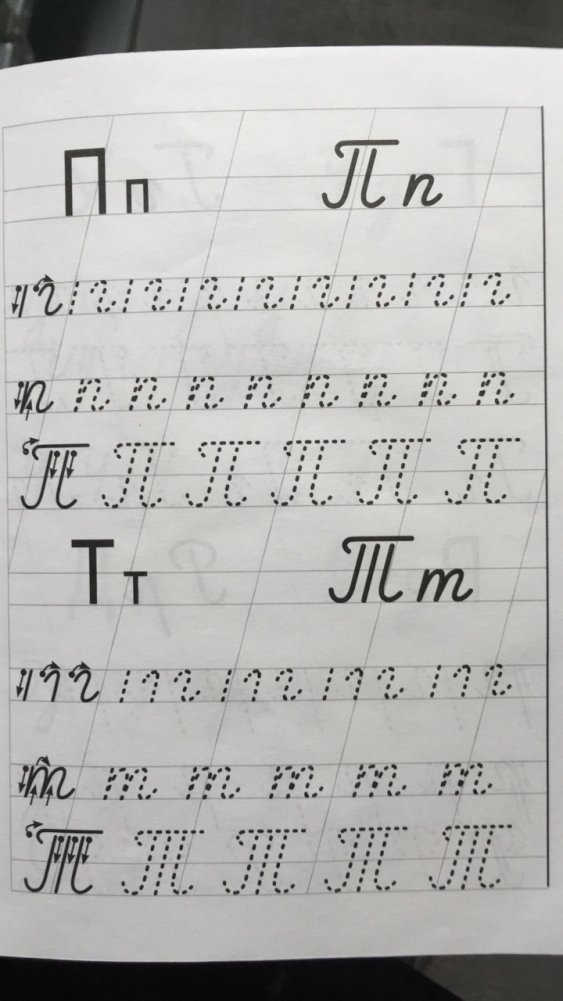 П п П п
п п п п п п п п п
П П П П П П
Т т Т т
т т т т т т
Т Т Т Т Т